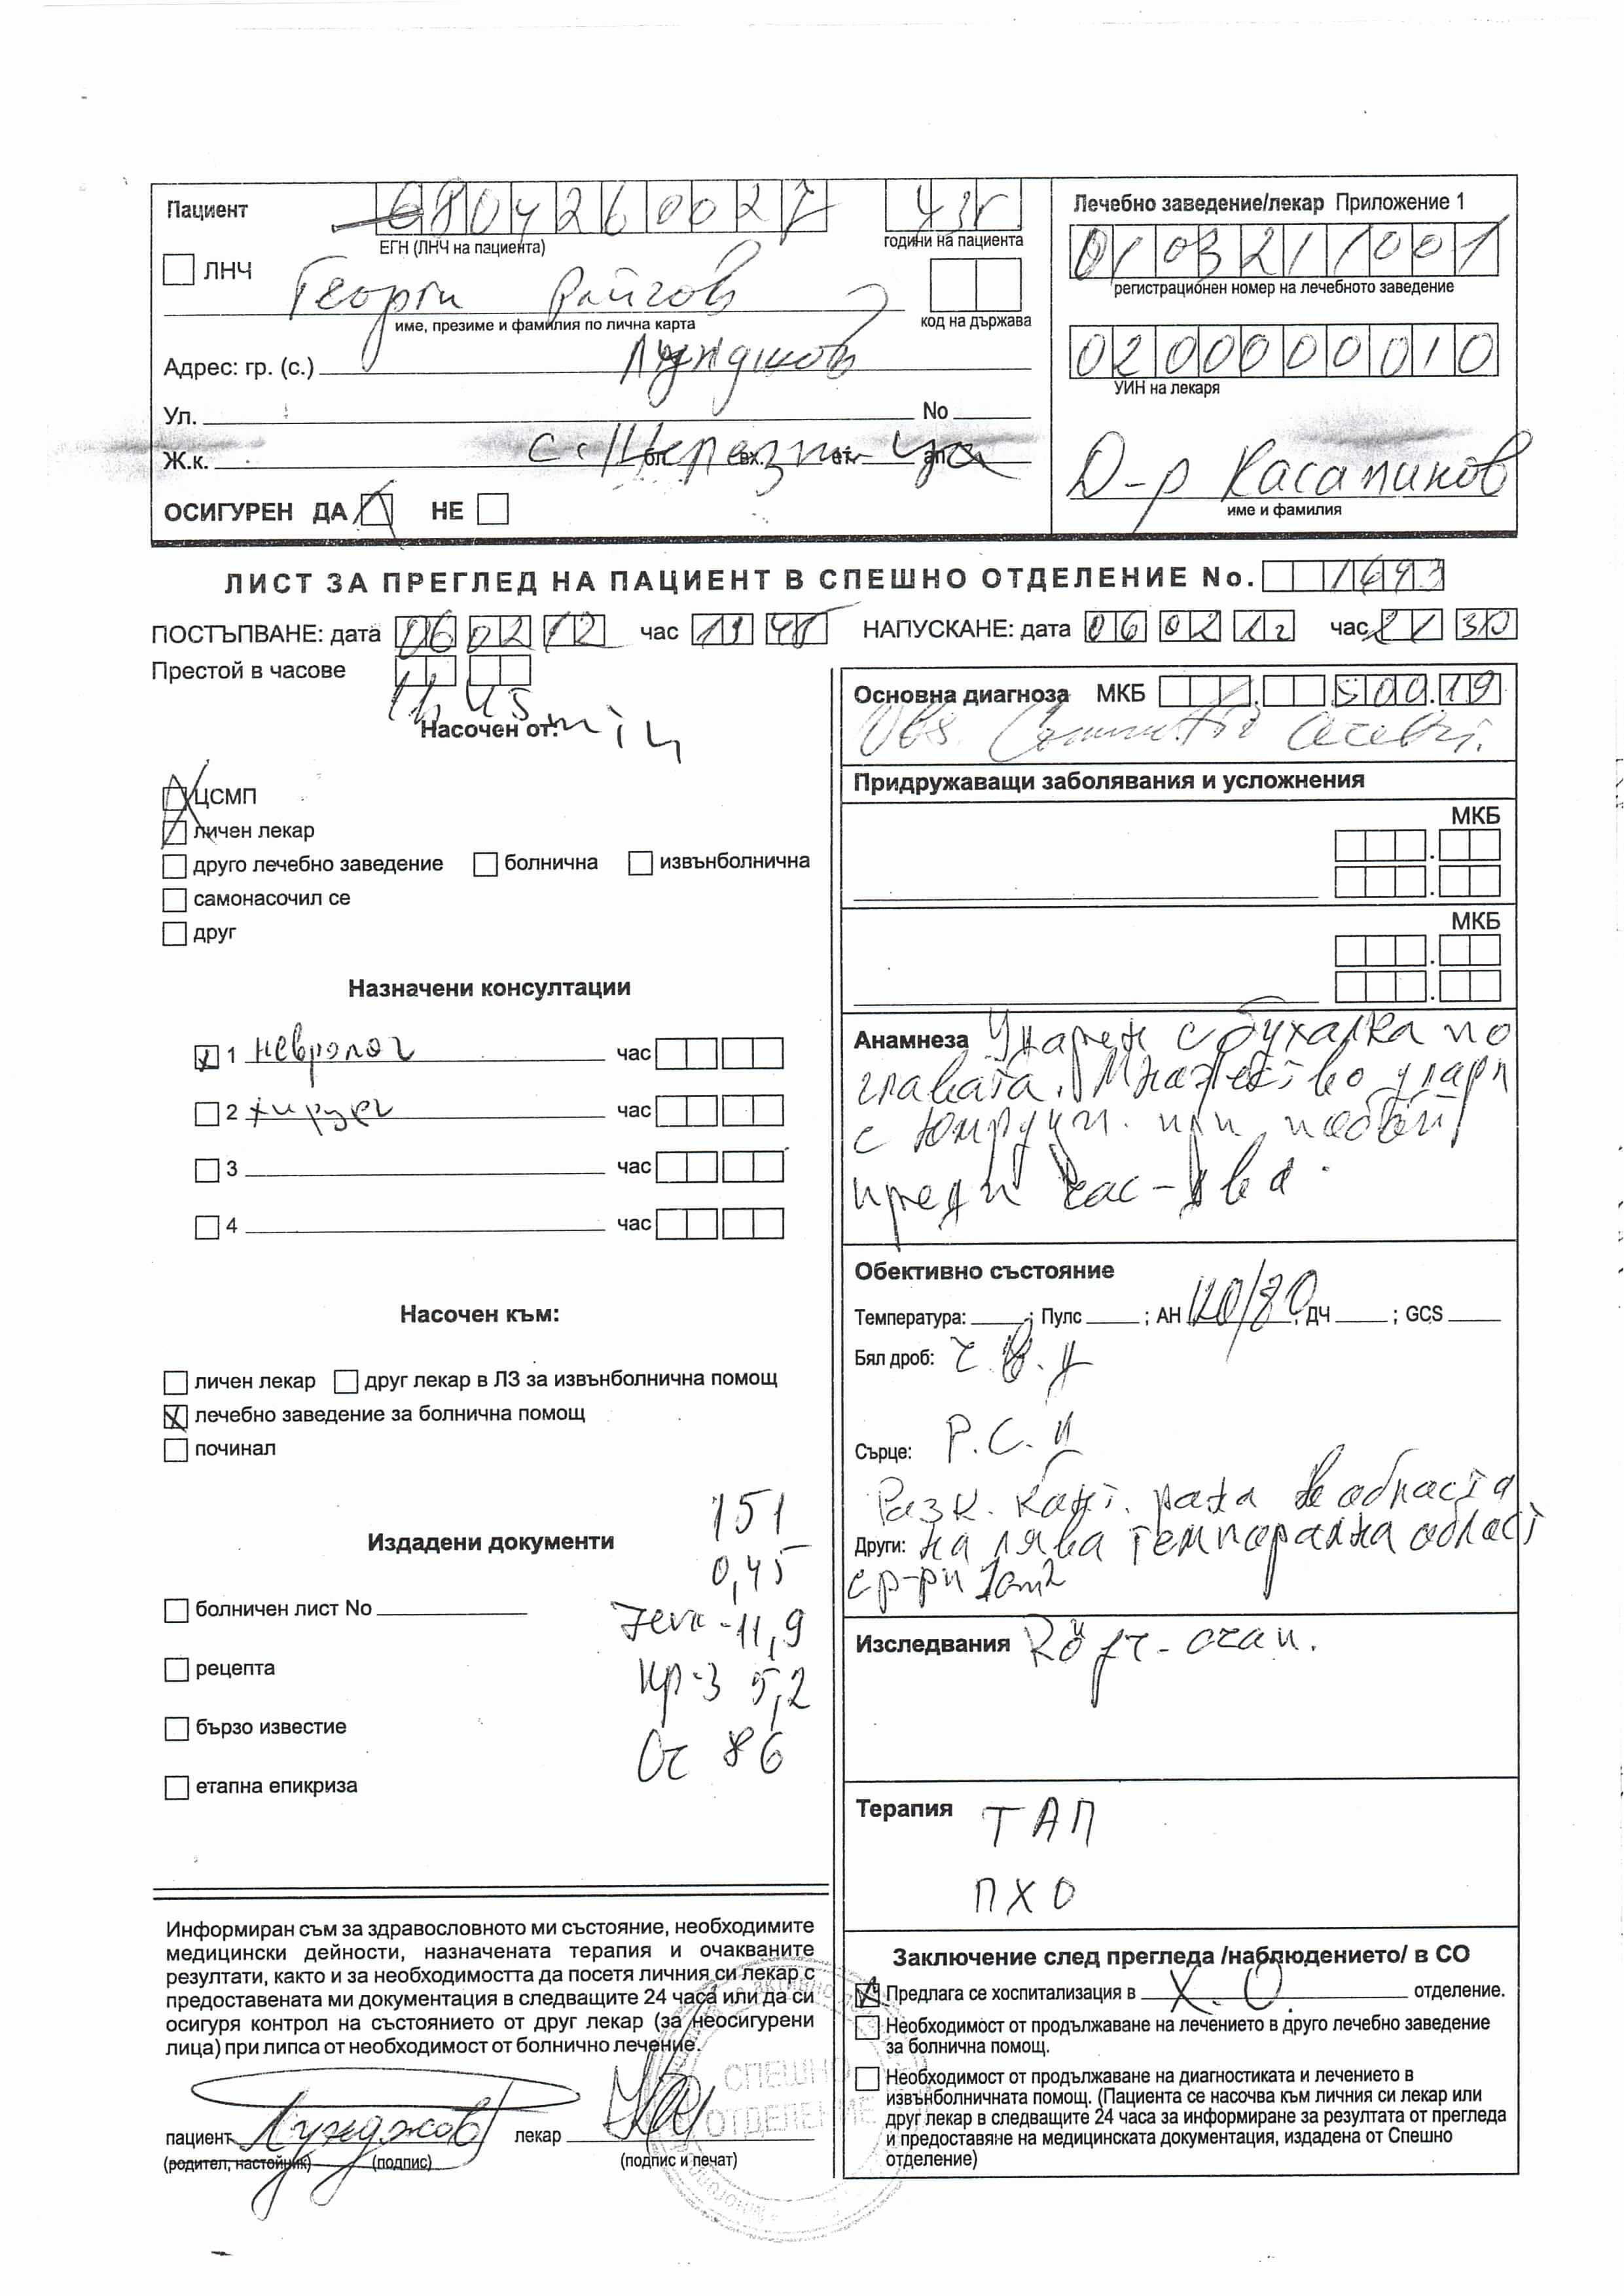 Пациент 6804260027 43г
ЕГН (ЛНЧ на пациента) години на пациента
ЛНЧ
Георги
име, презиме и фамилия по лична карта код на държава
Адрес: гр. (с.)
Ул. No
Ж.к. бл. вх. ет. ап.
ОСИГУРЕН ДА НЕ
Лечебно заведение/лекар Приложение 1
0103211001
регистрационен номер на лечебното заведение
0200000010
УИН на лекаря
Д-р Касапинов
име и фамилия
ЛИСТ ЗА ПРЕГЛЕД НА ПАЦИЕНТ В СПЕШНО ОТДЕЛЕНИЕ No. 1693
ПОСТЪПВАНЕ: дата 06 02 12 час 19 45 НАПУСКАНЕ: дата 06 02 12 час 21 30
Престой в часове
1h 45 min
Насочен от:
ЦСМП
личен лекар
друго лечебно заведение болнична извънболнична
самонасочил се
друг
Назначени консултации
1 невролог час
2 хирург час
3 час
4 час
Насочен към:
личен лекар друг лекар в ЛЗ за извънболнична помощ
лечебно заведение за болнична помощ
починал
151
Издадени документи
0,45
болничен лист No
11,9
рецепта
5,2
бързо известие
86
етапна епикриза
Информиран съм за здравословното ми състояние, необходимите
медицински дейности, назначената терапия и очакваните
резултати, както и за необходимостта да посетя личния си лекар с
предоставената ми документация в следващите 24 часа или да си
осигуря контрол на състоянието от друг лекар (за неосигурени
лица) при липса от необходимост от болнично лечение.
СПЕШНО
ОТДЕЛЕНИЕ
пациент лекар
(родител, настойник) (подпис) (подпис и печат)
Основна диагноза МКБ S00.19
Obs. Commotio cerebri.
Придружаващи заболявания и усложнения
МКБ
МКБ
Анамнеза Ударен с бухалка по
главата. Множество удари
с юмруци. при побой
преди час-два.
Обективно състояние
Температура: ; Пулс ; АН 120/80 ; ДЧ ; GCS
Бял дроб:
Сърце: Р.С.
Разк. конт. рана в областа
Други: на лява темпорална област
с р-ри 1cm2
Изследвания
Терапия ТАП
ПХО
Заключение след прегледа /наблюдението/ в СО
Предлага се хоспитализация в Х.О. отделение.
Необходимост от продължаване на лечението в друго лечебно заведение
за болнична помощ.
Необходимост от продължаване на диагностиката и лечението в
извънболничната помощ. (Пациента се насочва към личния си лекар или
друг лекар в следващите 24 часа за информиране за резултата от прегледа
и предоставяне на медицинската документация, издадена от Спешно
отделение)